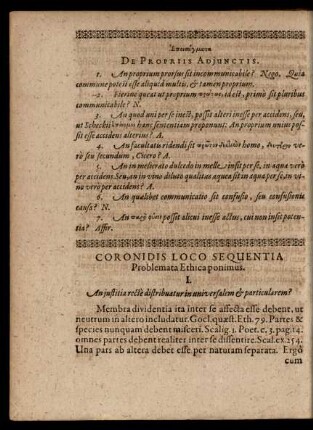 Ἐπιστήματα
DE PROPRIIS ADJUNCTIS.
1. An proprium prorsus sit incommunicabile? Nego. Quia
commune potest esse aliquid multis, & tamen proprium.
2. sit ut proprium id est, primò sit pluribus
communicabile? N.
3. An quod ani per se inest, possit alteri inesse per accidens, seu,
ut Scheckii hanc sententiam proponunt: An proprium unius pos-
sit esse accidens alterius? A.
4. An facultatu ridendi sit homo,
rò seu secundum, Cicero? A.
5. An in mellerato dulcedo in melle, insit per se, in aqua verò
per accidens Seu, an in vino diluto qualitas aquea sit in aqua per se, in vi-
no verò per accidens? A.
6. An qualibet communicatio sit confusio, seu confusionis
causa? N.
7. An possit alicui inesse actus, cui non insit poten-
tia? Affir.
CORONIDIS LOCO SEQUENTIA
Problemata Ethica ponimus.
I.
An justitia rectè distribuatur in universalem & particularem?
Membra dividentia ita inter se affecta esse debent, ut
neutrum in altero includatur. Gocl. quæst. Eth. 79. Partes &
species nunquam debent misceri. Scalig. 1. Poet. c. 3. pag. 14.
omnes partes debent realiter inter se dissentire. Scal. ex. 254.
Una pars ab altera debet esse per naturam separata. Ergò
cum